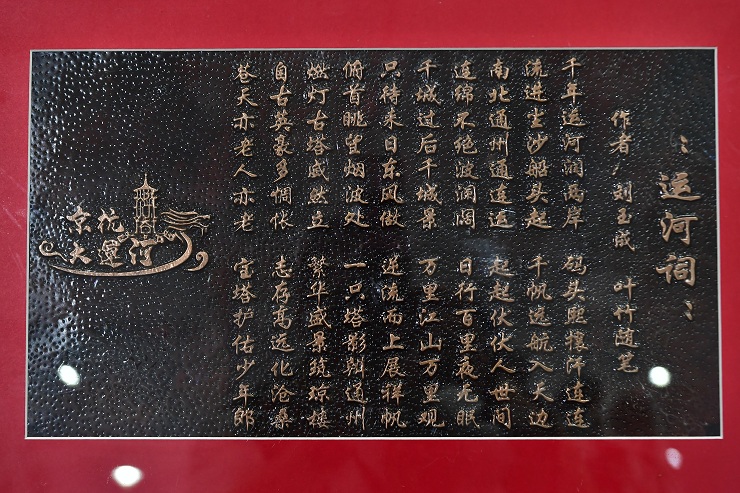 ：运河词：
作者/刘玉成 叶竹随笔
千年运河润两岸 码头熙攘泽连连
流进尘沙船头起 千帆远航入天边
南北通州通连运 起起伏伏人世间
连绵不绝波澜阔 日行百里夜无眠
千城过后千城景 万里江山万里观
只待来日东风傲 逆流而上展祥帆
俯首眺望烟波处 一只塔影到通州
燃灯古塔威然立 繁华盛景筑琼楼
自古英豪多惆怅 志存高远化沧桑
苍天亦老人亦老 宝塔护佑少年郎
京杭
大運河